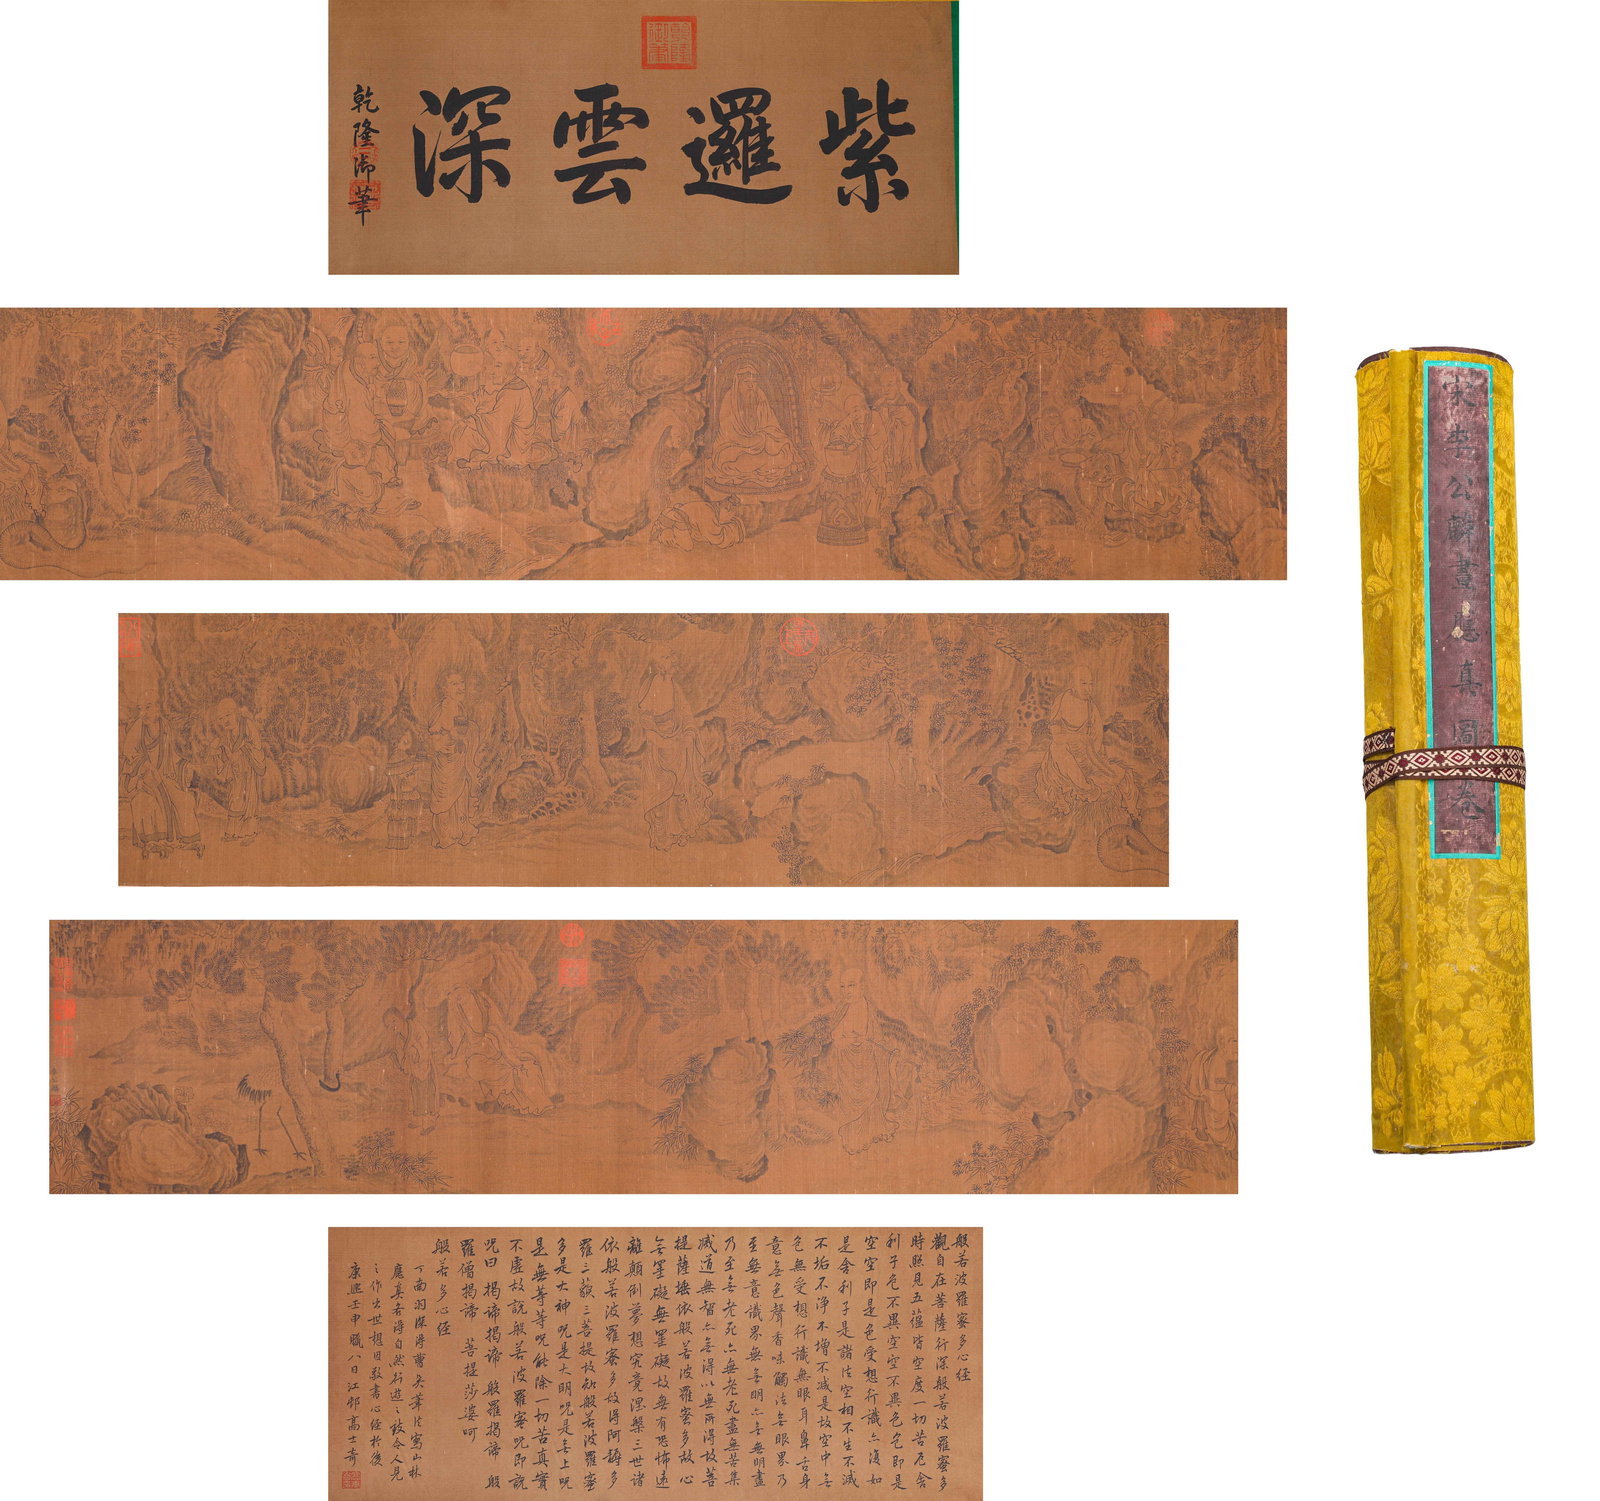 紫邏雲深
乾隆御筆
乾隆御筆
宋李公麟畫應真圖卷
般若波羅蜜多心經
觀自在菩薩行深般若波羅蜜多
時照見五蘊皆空度一切苦厄舍
利子色不異空空不異色色即是
空空即是色受想行識亦復如
是舍利子是諸法空相不生不滅
不垢不淨不增不減是故空中無
色無受想行識無眼耳鼻舌身
意無色聲香味觸法無眼界乃
至無意識界無無明亦無無明盡
乃至無老死亦無老死盡無苦集
滅道無智亦無得以無所得故菩
提薩埵依般若波羅蜜多故心
無罣礙無罣礙故無有恐怖遠
離顛倒夢想究竟涅槃三世諸
依般若波羅蜜多故得阿耨多
羅三藐三菩提故知般若波羅蜜
多是大神呪是大明呪是無上呪
是無等等呪能除一切苦真實
不虛故說般若波羅蜜呪即說
呪曰 揭諦揭諦 般羅揭諦 般
羅僧揭諦 菩提莎婆呵
般若多心經
丁南羽深得曹吳筆法寫山林
應真者得自然行遊之致令人見
之作出世想因敬書心經於後
康熙壬申臘八日江邨高士奇